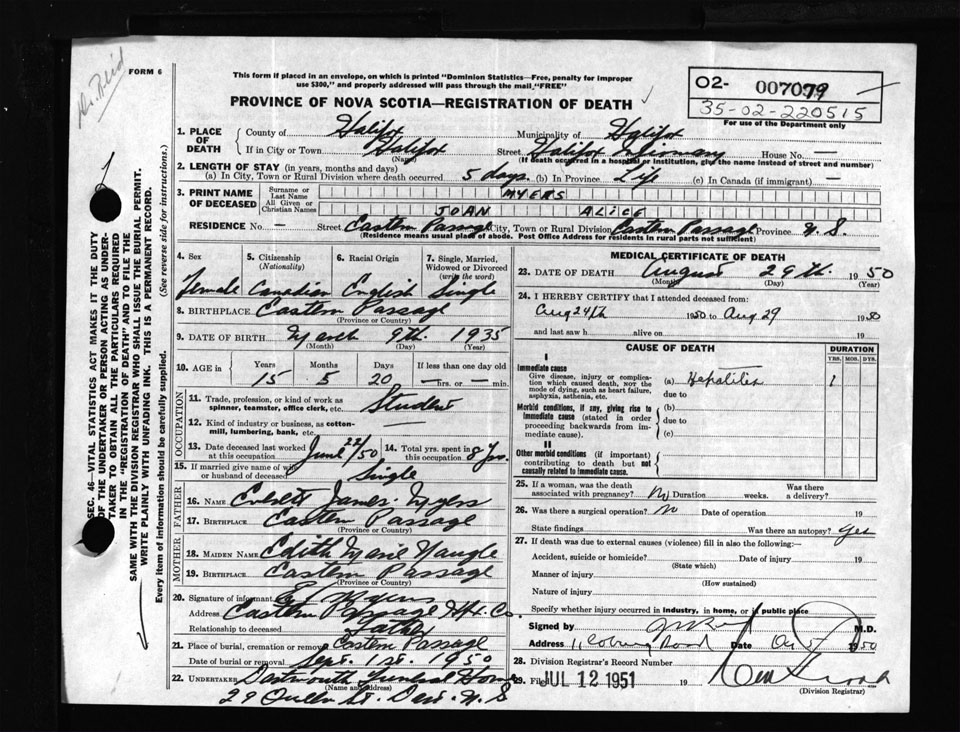 Dr. Reid
FORM 6
This form if placed in an envelope, on which is printed "Dominion Statistics—Free, penalty for improper
use $300," and properly addressed will pass through the mail, "FREE"
PROVINCE OF NOVA SCOTIA—REGISTRATION OF DEATH
02- 007079
35-02-220515
For use of the Department only
1. PLACE OF DEATH County of Halifax Municipality of Halifax
If in City or Town Halifax (Name) Street Halifax Infirmary House No. —
(If death occurred in a hospital or institution, give the name instead of street and number)
2. LENGTH OF STAY (in years, months and days)
(a) In City, Town or Rural Division where death occurred 5 days. (b) In Province Life (c) In Canada (if immigrant) —
3. PRINT NAME OF DECEASED Surname or Last Name MYERS
All Given or Christian Names JOAN ALICE
RESIDENCE No. — Street Eastern Passage City, Town or Rural Division Eastern Passage Province N. S.
(Residence means usual place of abode. Post Office Address for residents in rural parts not sufficient)
4. Sex Female
5. Citizenship (Nationality) Canadian
6. Racial Origin English
7. Single, Married, Widowed or Divorced (write the word) Single
8. BIRTHPLACE Eastern Passage
(Province or Country)
9. DATE OF BIRTH March 9th. 1935
(Month) (Day) (Year)
10. AGE in Years 15 Months 5 Days 20 If less than one day old — hrs. or — min.
OCCUPATION
11. Trade, profession, or kind of work as spinner, teamster, office clerk, etc. Student
12. Kind of industry or business, as cotton-mill, lumbering, bank, etc.
13. Date deceased last worked at this occupation June 22/50 14. Total yrs. spent in this occupation 8 yrs.
15. If married give name of wife or husband of deceased Single
FATHER
16. NAME Everett James Myers
17. BIRTHPLACE Eastern Passage
(Province or Country)
MOTHER
18. MAIDEN NAME Edith Marie Naugle
19. BIRTHPLACE Eastern Passage
(Province or Country)
20. Signature of informant E J Myers
Address Eastern Passage Hfx. Co.
Relationship to deceased Father
21. Place of burial, cremation or removal Eastern Passage
Date of burial or removal Sept. 1st. 1950
22. UNDERTAKER Dartmouth Funeral Home
(Name and address)
29 Queen St. Dart. N. S
MEDICAL CERTIFICATE OF DEATH
23. DATE OF DEATH August 29th. 1950
(Month) (Day)
24. I HEREBY CERTIFY that I attended deceased from:
Aug 24th 1950 to Aug 29 1950
and last saw h alive on
CAUSE OF DEATH
DURATION
YRS. MOS. DYS.
I
Immediate cause
Give disease, injury or complication which caused death, NOT the mode of dying, such as heart failure, asphyxia, asthenia, etc.
(a) Hepatitis 1
due to
Morbid conditions, if any, giving rise to immediate cause (stated in order proceeding backwards from immediate cause).
(b)
due to
(c)
II
Other morbid conditions (if important) contributing to death but not causally related to immediate cause.
25. If a woman, was the death associated with pregnancy? No Duration weeks. Was there a delivery?
26. Was there a surgical operation? No Date of operation 19
State findings Was there an autopsy? Yes
27. If death was due to external causes (violence) fill in also the following:—
Accident, suicide or homicide? Date of injury 19
(State which)
Manner of injury
(How sustained)
Nature of injury
Specify whether injury occurred in industry, in home, or in public place
Signed by M.D.
Address 11 Coburg Road Date 1950
28. Division Registrar's Record Number
29. Filed JUL 12 1951 19
(Division Registrar)
SEC. 46—VITAL STATISTICS ACT MAKES IT THE DUTY
OF THE UNDERTAKER OR PERSON ACTING AS UNDER-
TAKER TO OBTAIN ALL THE PARTICULARS REQUIRED
IN THE "REGISTRATION OF DEATH" AND TO FILE THE
SAME WITH THE DIVISION REGISTRAR WHO SHALL ISSUE THE BURIAL PERMIT.
WRITE PLAINLY WITH UNFADING INK. THIS IS A PERMANENT RECORD.
Every item of information should be carefully supplied. (See reverse side for instructions.)